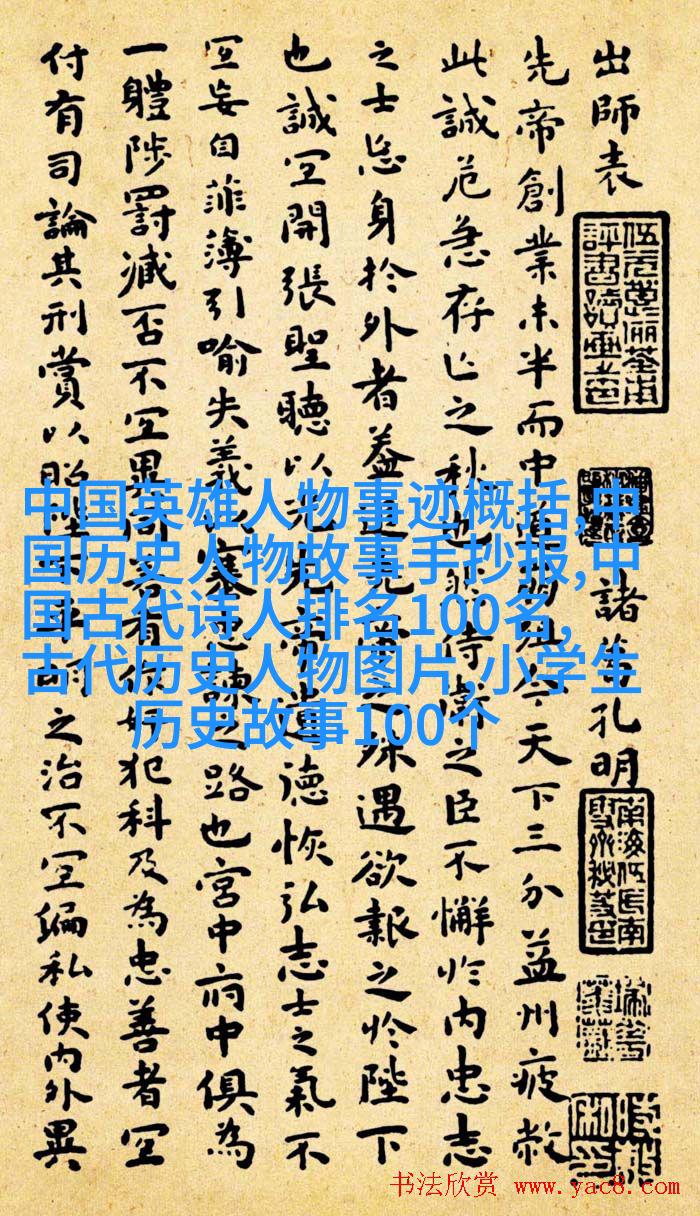 出師表
諸葛孔明
先帝創業未半而中道崩殂今天下三分益州疲敝
此誠危急存亡之秋也然侍衛之臣不懈於内忠志
之士忘身於外者蓋追先帝之殊遇欲報之於陛下
也誠宜開張聖聽以光先帝遺德恢弘志士之氣不
宜妄自菲薄引喻失義以塞忠諫之路也宮中府中俱為
一體陟罰臧否不宜異同若有作奸犯科及為忠善者宜
付有司論其刑賞以昭陛下平明之治不宜偏私使内外異
中国英雄人物事迹概括,中
国历史人物故事手抄报,中
国古代诗人排名100名,
古代历史人物图片,小学生
历史故事100个
书法欣赏 www.yac8.com